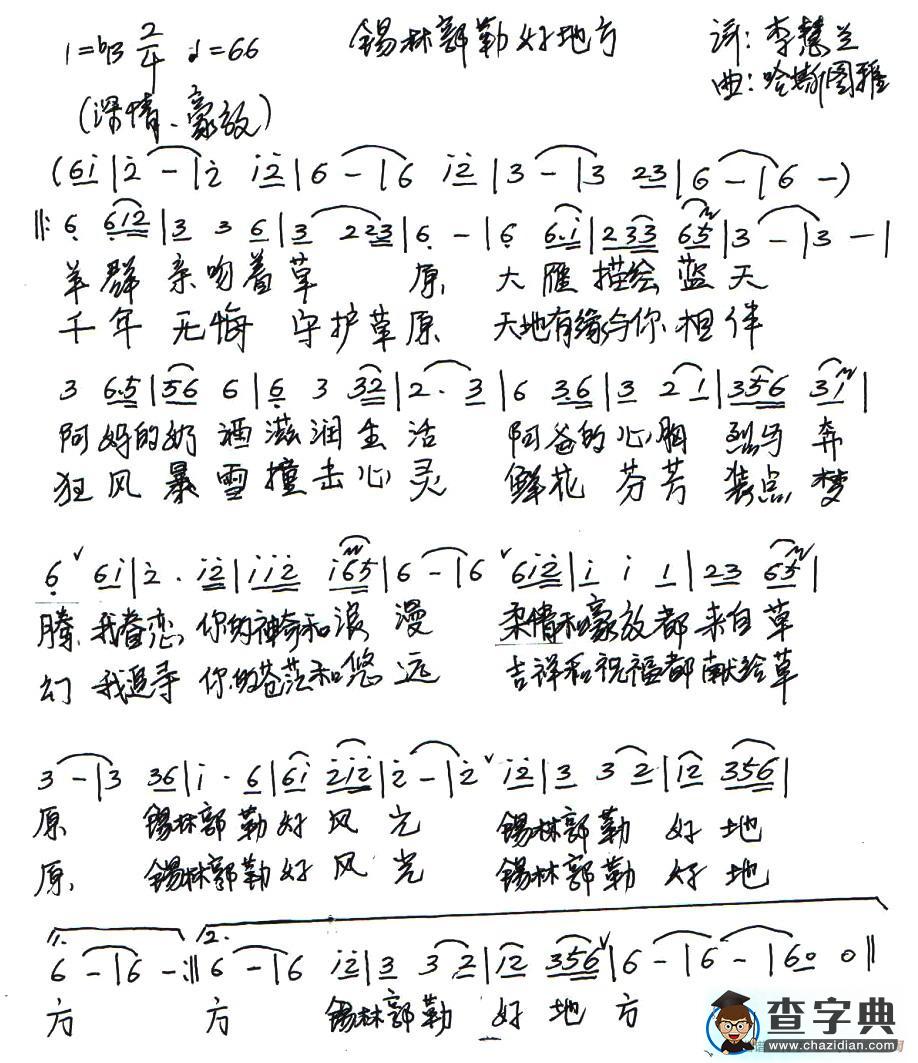 1=bB 2/4 ♩=66 锡林郭勒好地方 词:李慧兰
曲:哈斯图雅
(深情、豪放)
(6i|2 - |2 i2|6 - |6 i2|3 - |3 23|6 - |6 -)
‖: 6 612|3 3 6|3 223|6 - |6 6·i|233 65|3 - |3 - |
羊群 亲吻着草 原 大雁描绘蓝天
千年 无悔 守护草原 天地有缘与你相伴
3 6·5|56 6|6 3 32|2· 3|6 36|3 2 1|356 31|
阿妈的奶 酒滋润生活 阿爸的心胸 烈马奔
狂风暴雪撞击心灵 鲜花芬芳装点梦
6 ˇ 6i|2· i2|iii2 i65|6 - |6 ˇ 6i2|i i 1|23 65|
腾 我眷恋 你的神奇和浪漫 柔情和豪放都来自草
幻 我追寻 你的苍茫和悠远 吉祥和祝福都献给草
3 - |3 36|i· 6|6i 2i2|2 - |2 ˇ i2|3 3 2|i2 356|
原 锡林郭勒好风光 锡林郭勒 好地
原 锡林郭勒好风光 锡林郭勒 好地
1. 2.
6 - |6 - :‖6 - |6 i2|3 3 2|i2 356 ˇ|6 - |6 - |60 0‖
方 方 锡林郭勒 好地方
查字典
www.chazidian.com